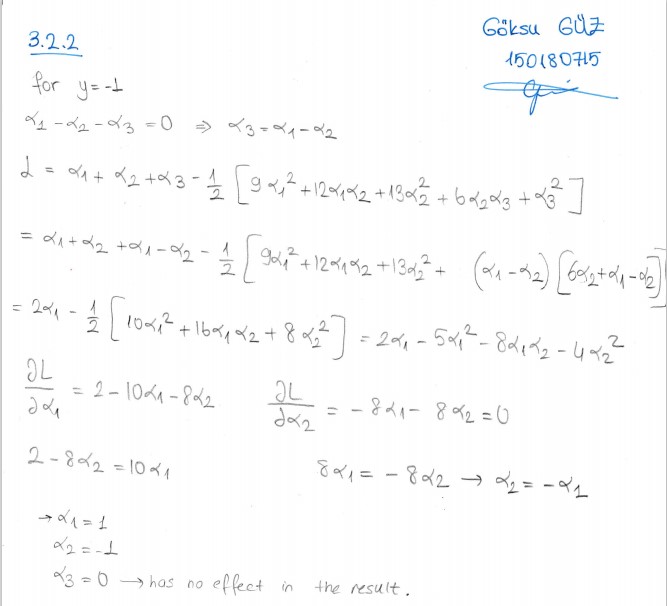 Göksu GÜZ
150180715
3.2.2
for y=-1
α1 - α2 - α3 = 0 ⇒ α3 = α1 - α2
L = α1 + α2 + α3 - 1/2 [9α1² + 12α1α2 + 13α2² + 6α2α3 + α3²]
= α1 + α2 + α1 - α2 - 1/2 [9α1² + 12α1α2 + 13α2² + (α1 - α2)[6α2 + α1 - α2]]
= 2α1 - 1/2 [10α1² + 16α1α2 + 8α2²] = 2α1 - 5α1² - 8α1α2 - 4α2²
∂L/∂α1 = 2 - 10α1 - 8α2 ∂L/∂α2 = -8α1 - 8α2 = 0
2 - 8α2 = 10α1 8α1 = -8α2 → α2 = -α1
→ α1 = 1
α2 = -1
α3 = 0 → has no effect in the result.